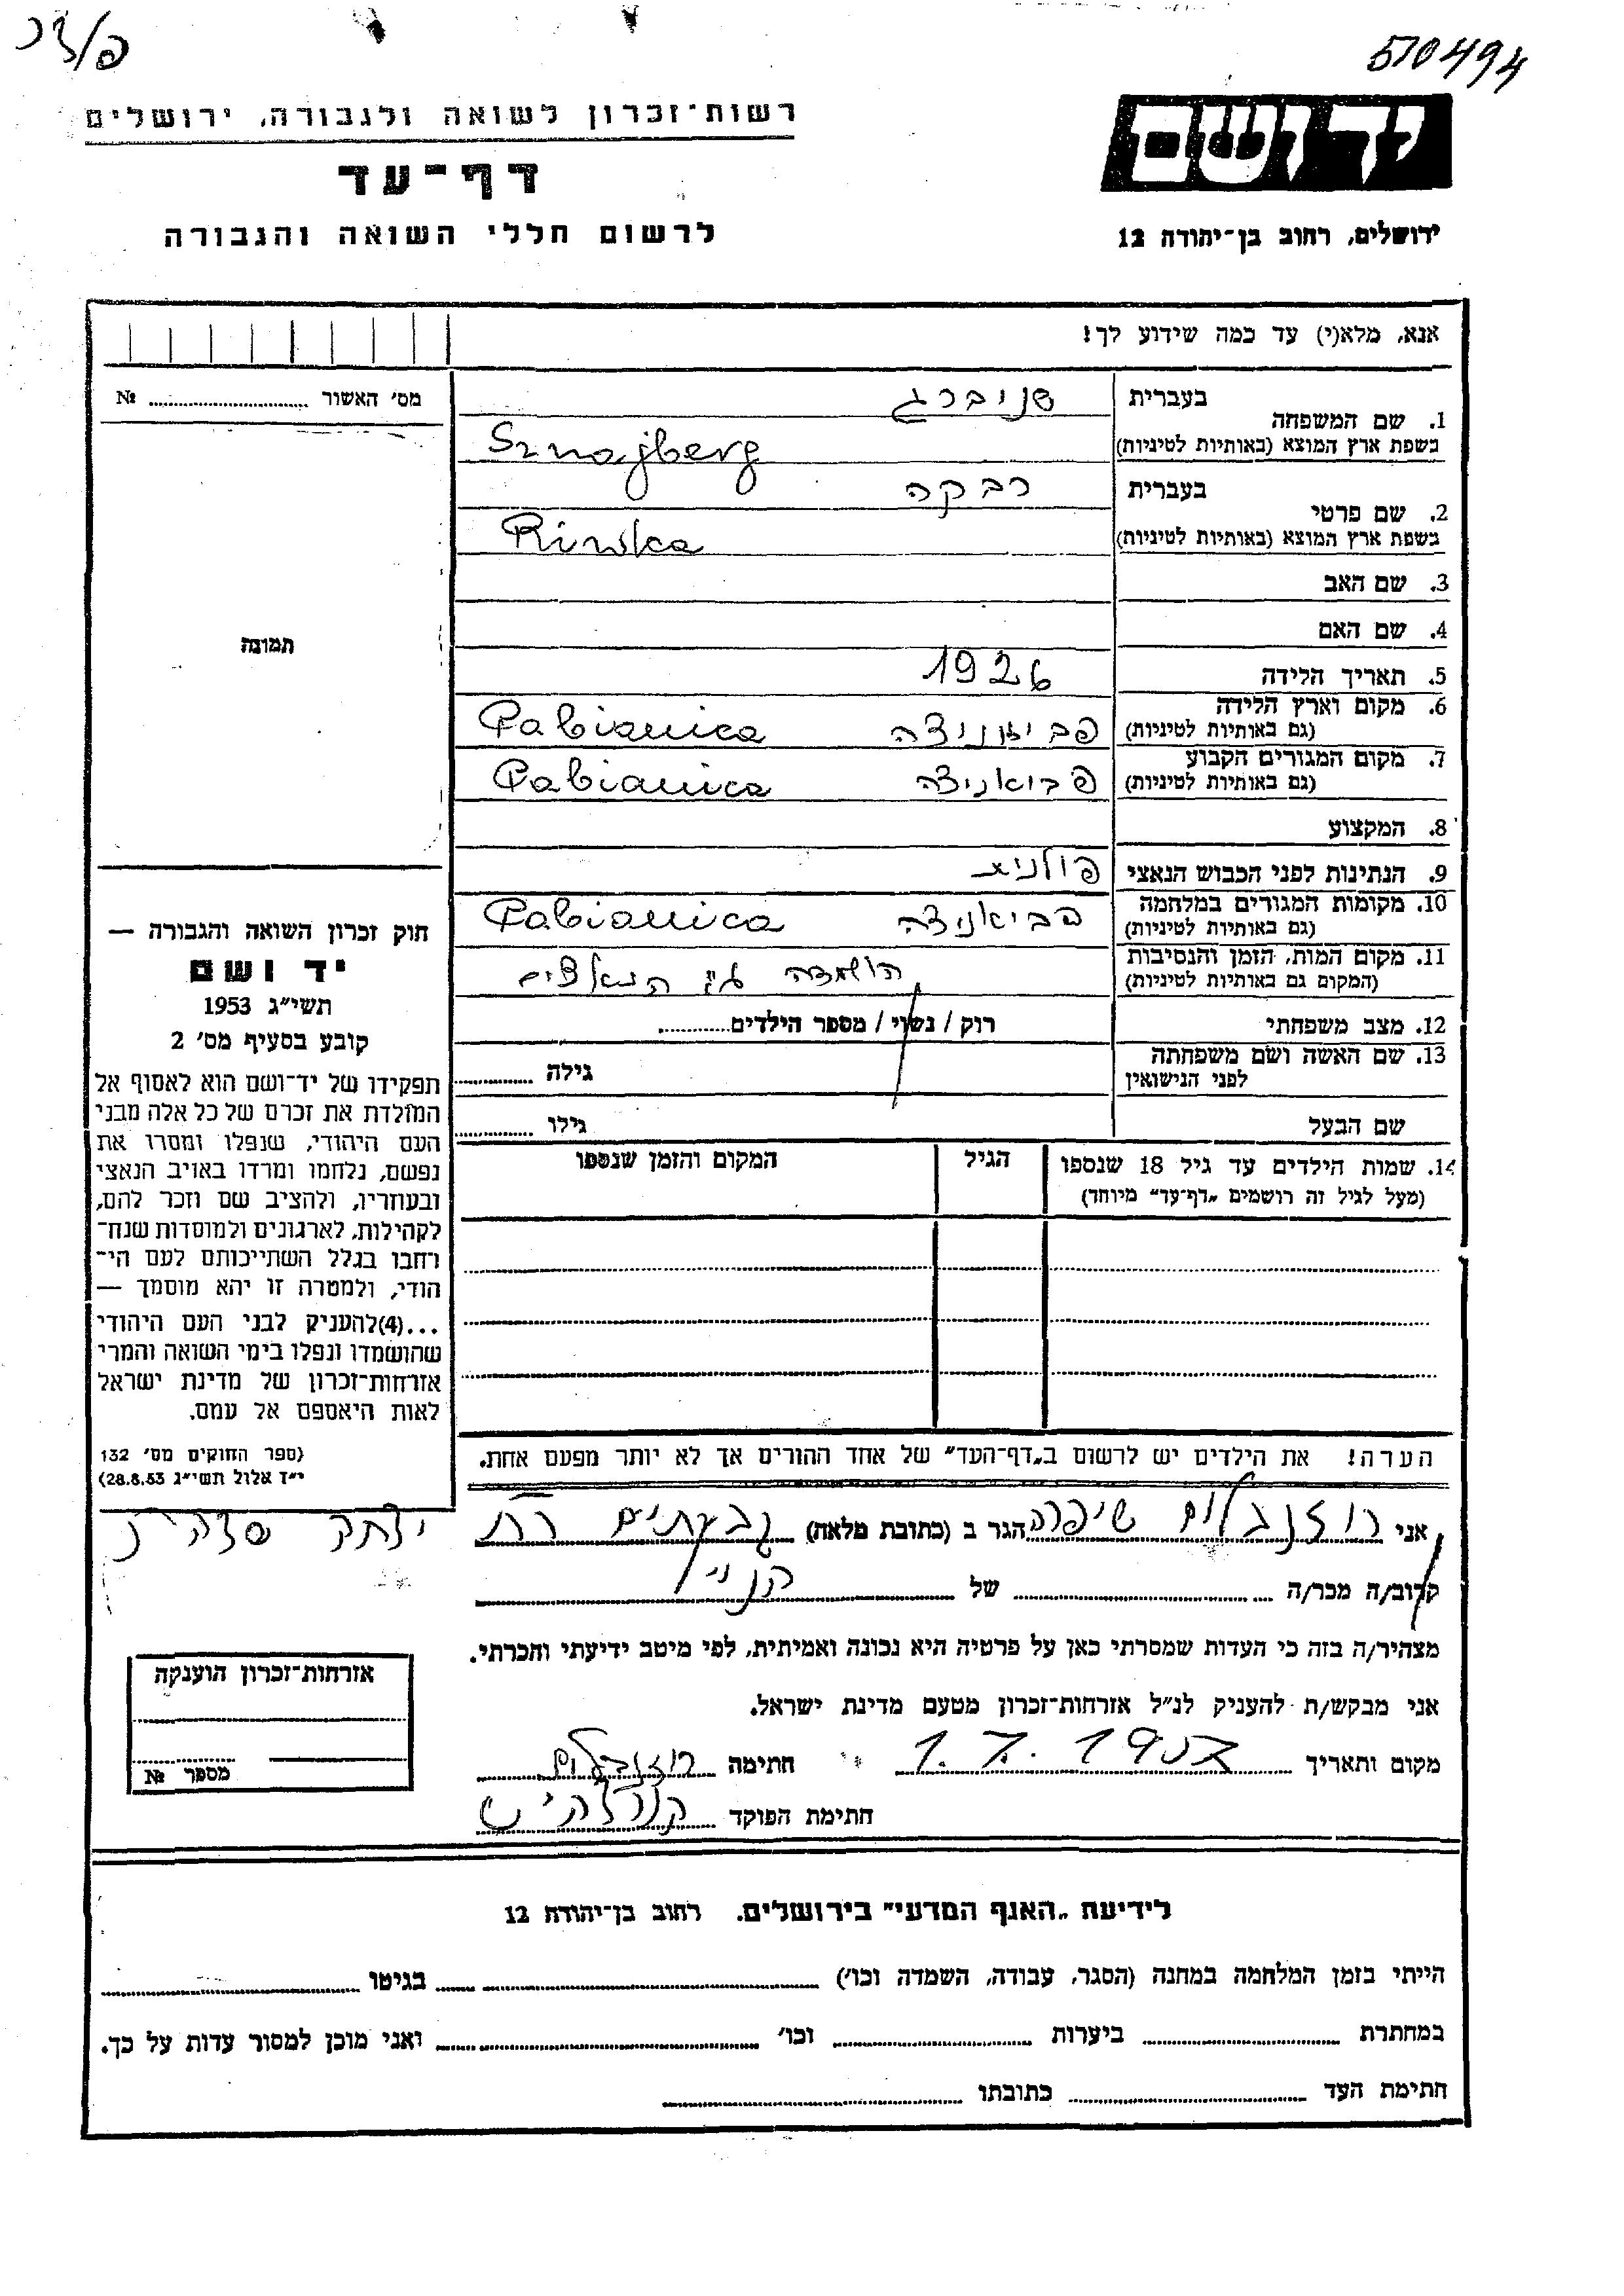 פ/צז
510494
יד ושם
רשות־זכרון לשואה ולגבורה, ירושלים
דף־עד
לרשום חללי השואה והגבורה
ירושלים, רחוב בן־יהודה 12
אנא, מלא(י) עד כמה שידוע לך!
מס׳ האשור № ..........
1. שם המשפחה בעברית שניברג
בשפת ארץ המוצא (באותיות לטיניות) Sznajberg
2. שם פרטי בעברית רבקה
בשפת ארץ המוצא (באותיות לטיניות) Riwka
3. שם האב
4. שם האם
5. תאריך הלידה 1926
6. מקום וארץ הלידה פביאניצה Pabianica
(גם באותיות לטיניות)
7. מקום המגורים הקבוע פביאניצה Pabianica
(גם באותיות לטיניות)
8. המקצוע
9. הנתינות לפני הכבוש הנאצי פולנית
10. מקומות המגורים במלחמה פביאניצה Pabianica
(גם באותיות לטיניות)
11. מקום המות, הזמן והנסיבות הושמדה ע״י הנאצים
(המקום גם באותיות לטיניות)
12. מצב משפחתי רוק / נשוי / מספר הילדים..........
13. שם האשה ושם משפחתה גילה ..........
לפני הנישואין
שם הבעל גילו ..........
14. שמות הילדים עד גיל 18 שנספו הגיל המקום והזמן שנספו
(מעל לגיל זה רושמים „דף־עד״ מיוחד)
הערה! את הילדים יש לרשום ב„דף־העד״ של אחד ההורים אך לא יותר מפעם אחת.
תמונה
חוק זכרון השואה והגבורה —
יד ושם
תשי״ג 1953
קובע בסעיף מס׳ 2
תפקידו של יד־ושם הוא לאסוף אל
המולדת את זכרם של כל אלה מבני
העם היהודי, שנפלו ומסרו את
נפשם, נלחמו ומרדו באויב הנאצי
ובעוזריו, ולהציב שם וזכר להם,
לקהילות, לארגונים ולמוסדות שנח־
רבו בגלל השתייכותם לעם הי־
הודי, ולמטרה זו יהא מוסמך —
...(4)להעניק לבני העם היהודי
שהושמדו ונפלו בימי השואה והמרי
אזרחות־זכרון של מדינת ישראל
לאות היאספם אל עמם.
(ספר החוקים מס׳ 132
י״ז אלול תשי״ג 28.8.53)
אני רוזנבלום שיפרה הגר ב (כתובת מלאה) גבעתיים רח יצחק שדה
קרוב/ה מכר/ה .......... של
מצהיר/ה בזה כי העדות שמסרתי כאן על פרטיה היא נכונה ואמיתית, לפי מיטב ידיעתי והכרתי.
אני מבקש/ת להעניק לנ״ל אזרחות־זכרון מטעם מדינת ישראל.
מקום ותאריך חתימה רוזנבלום
חתימת הפוקד
אזרחות־זכרון הוענקה
מספר №
לידיעת „האגף המדעי״ בירושלים. רחוב בן־יהודה 12
הייתי בזמן המלחמה במחנה (הסגר, עבודה, השמדה וכו׳) .......... בגיטו ..........
במחתרת .......... ביערות .......... וכו׳ .......... ואני מוכן למסור עדות על כך.
חתימת העד .......... כתובתו ..........